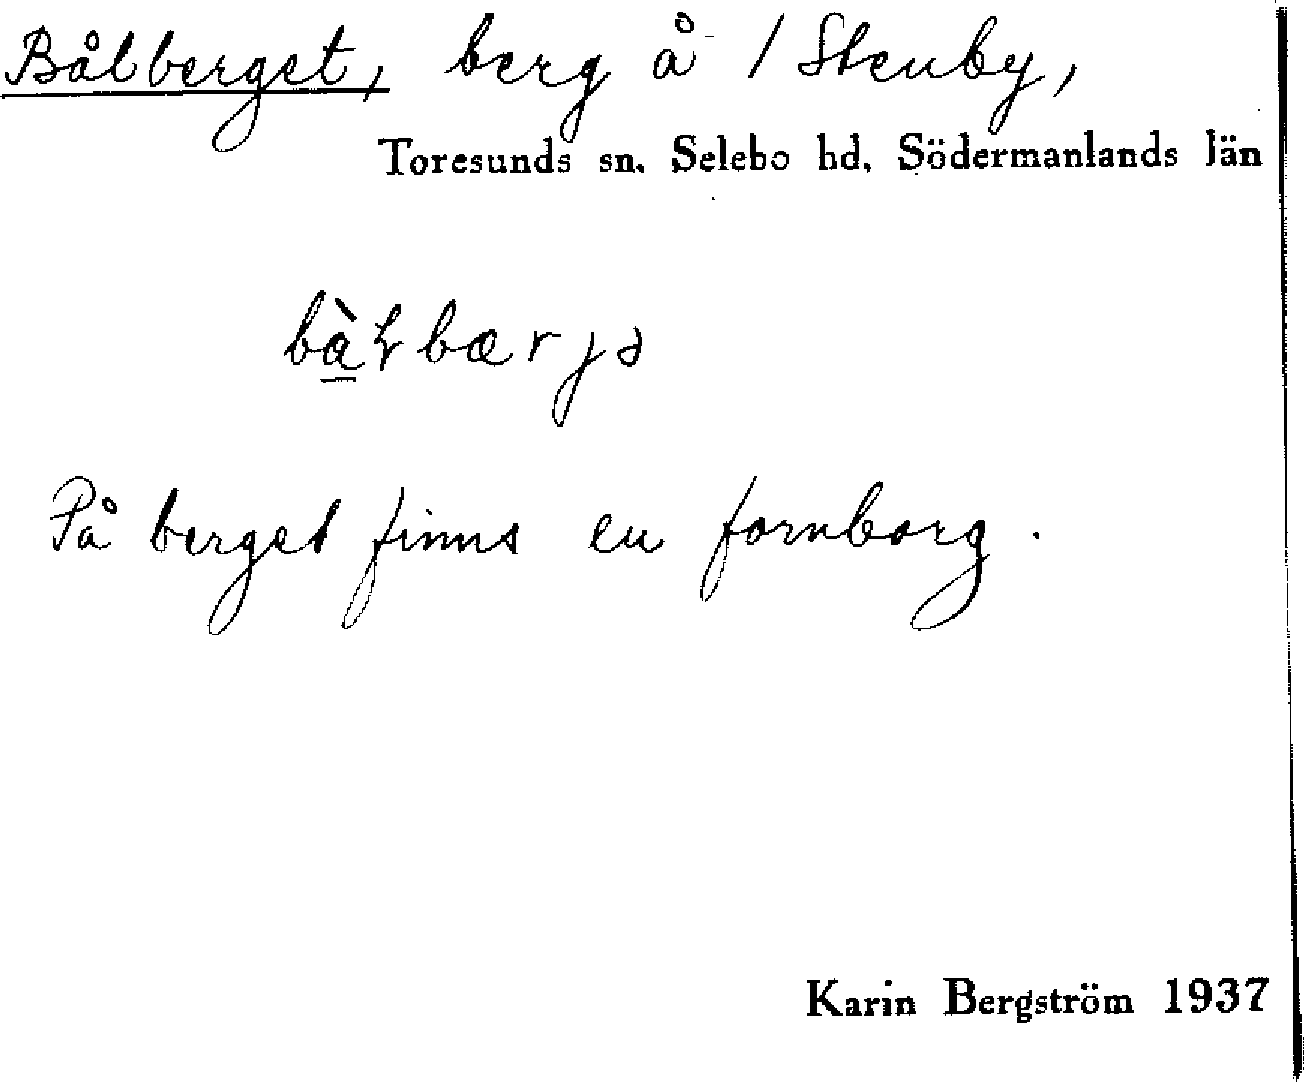 Bålberget, berg å / Stenby,
Toresunds sn. Selebo hd. Södermanlands län
bàɫbærjə
På berget finns en fornborg.
Karin Bergström 1937